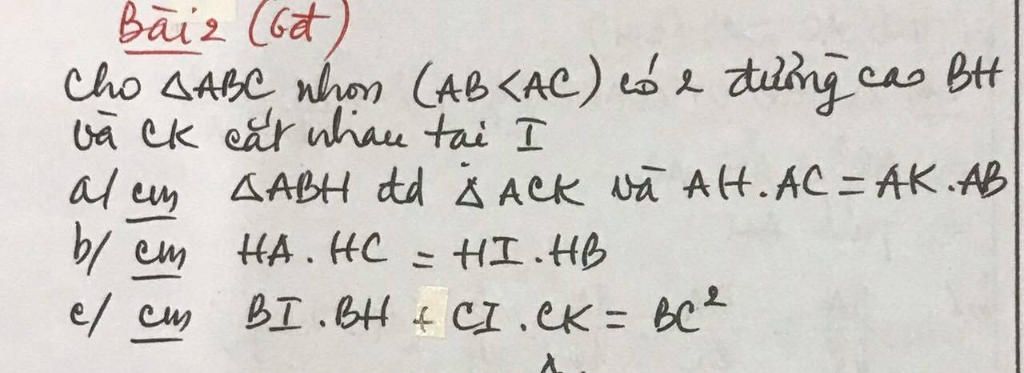 Bài 2 (6đ)
Cho △ABC nhọn (AB<AC) có 2 đường cao BH
và CK cắt nhau tại I
a/ cm △ABH đd △ACK và AH.AC = AK.AB
b/ cm HA.HC = HI.HB
c/ cm BI.BH + CI.CK = BC²